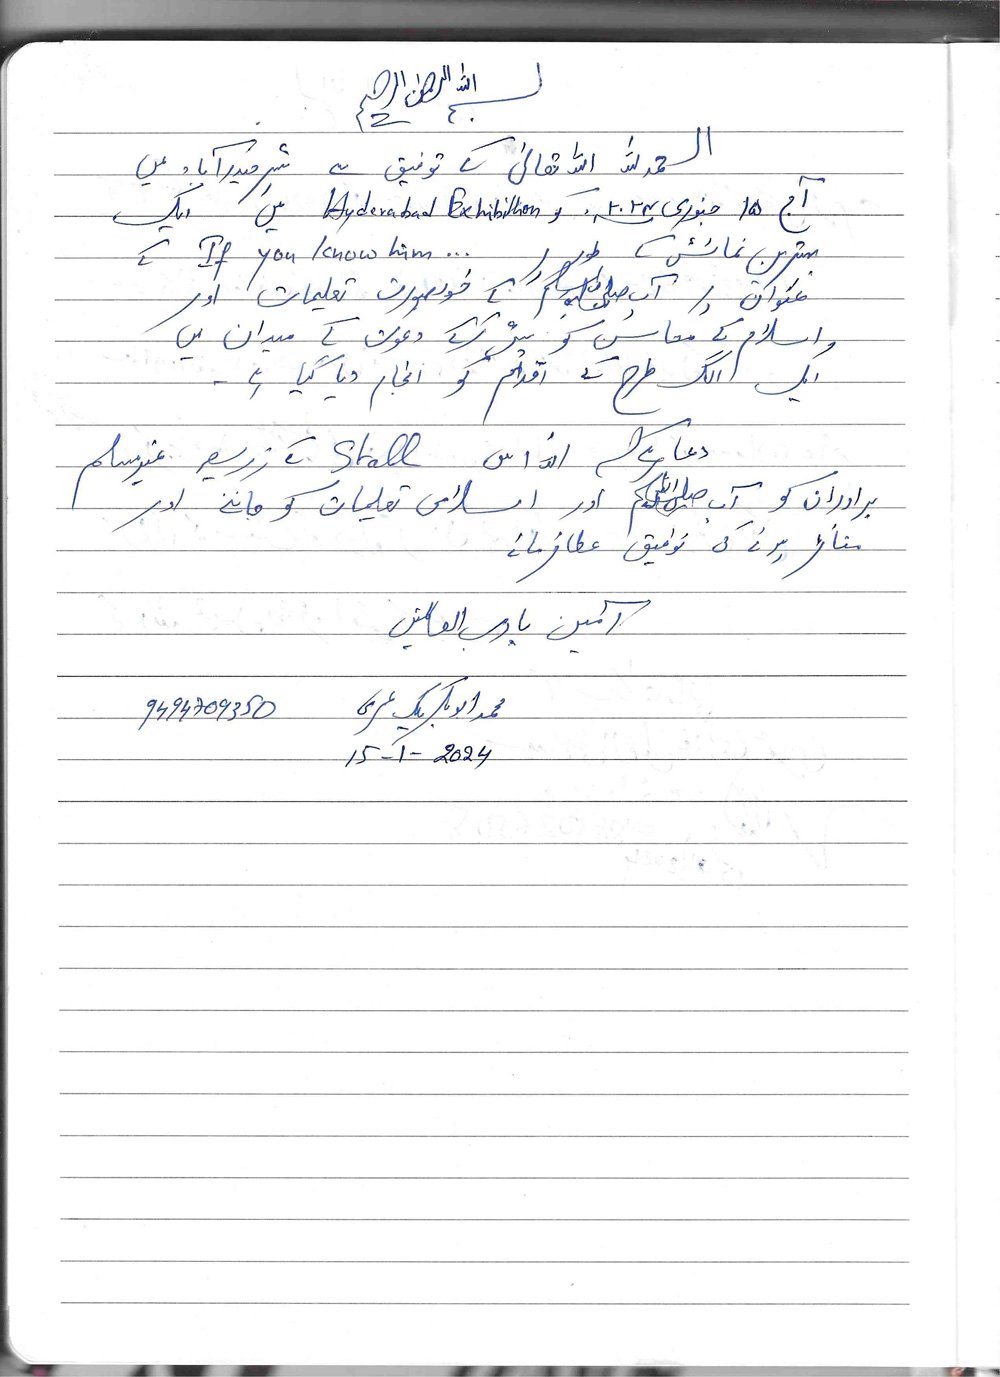 بسم اللہ الرحمن الرحیم
الحمدللہ اللہ تعالیٰ کے توفیق سے شہر حیدرآباد میں
آج ۱۵ جنوری ۲۰۲۴ء کو Hyderabad Exhibition میں ایک
بہترین نمائش کے طور پر If you know him ... کے
عنوان پر آپ صلی اللہ علیہ وسلم کے خوبصورت تعلیمات اور
اسلام کے محاسن کو پیش کرکے دعوت کے میدان میں
ایک الگ طرح کے اقدام کو انجام دیا گیا ہے۔
دعا ہے کہ اللہ اس Stall کے زریعہ غیر مسلم
برادران کو آپ صلی اللہ علیہ وسلم اور اسلامی تعلیمات کو جاننے اور
متأثر ہونے کی توفیق عطا فرمائے
آمین یا رب العالمین
محمد عمری 9494709350
15-1-2024